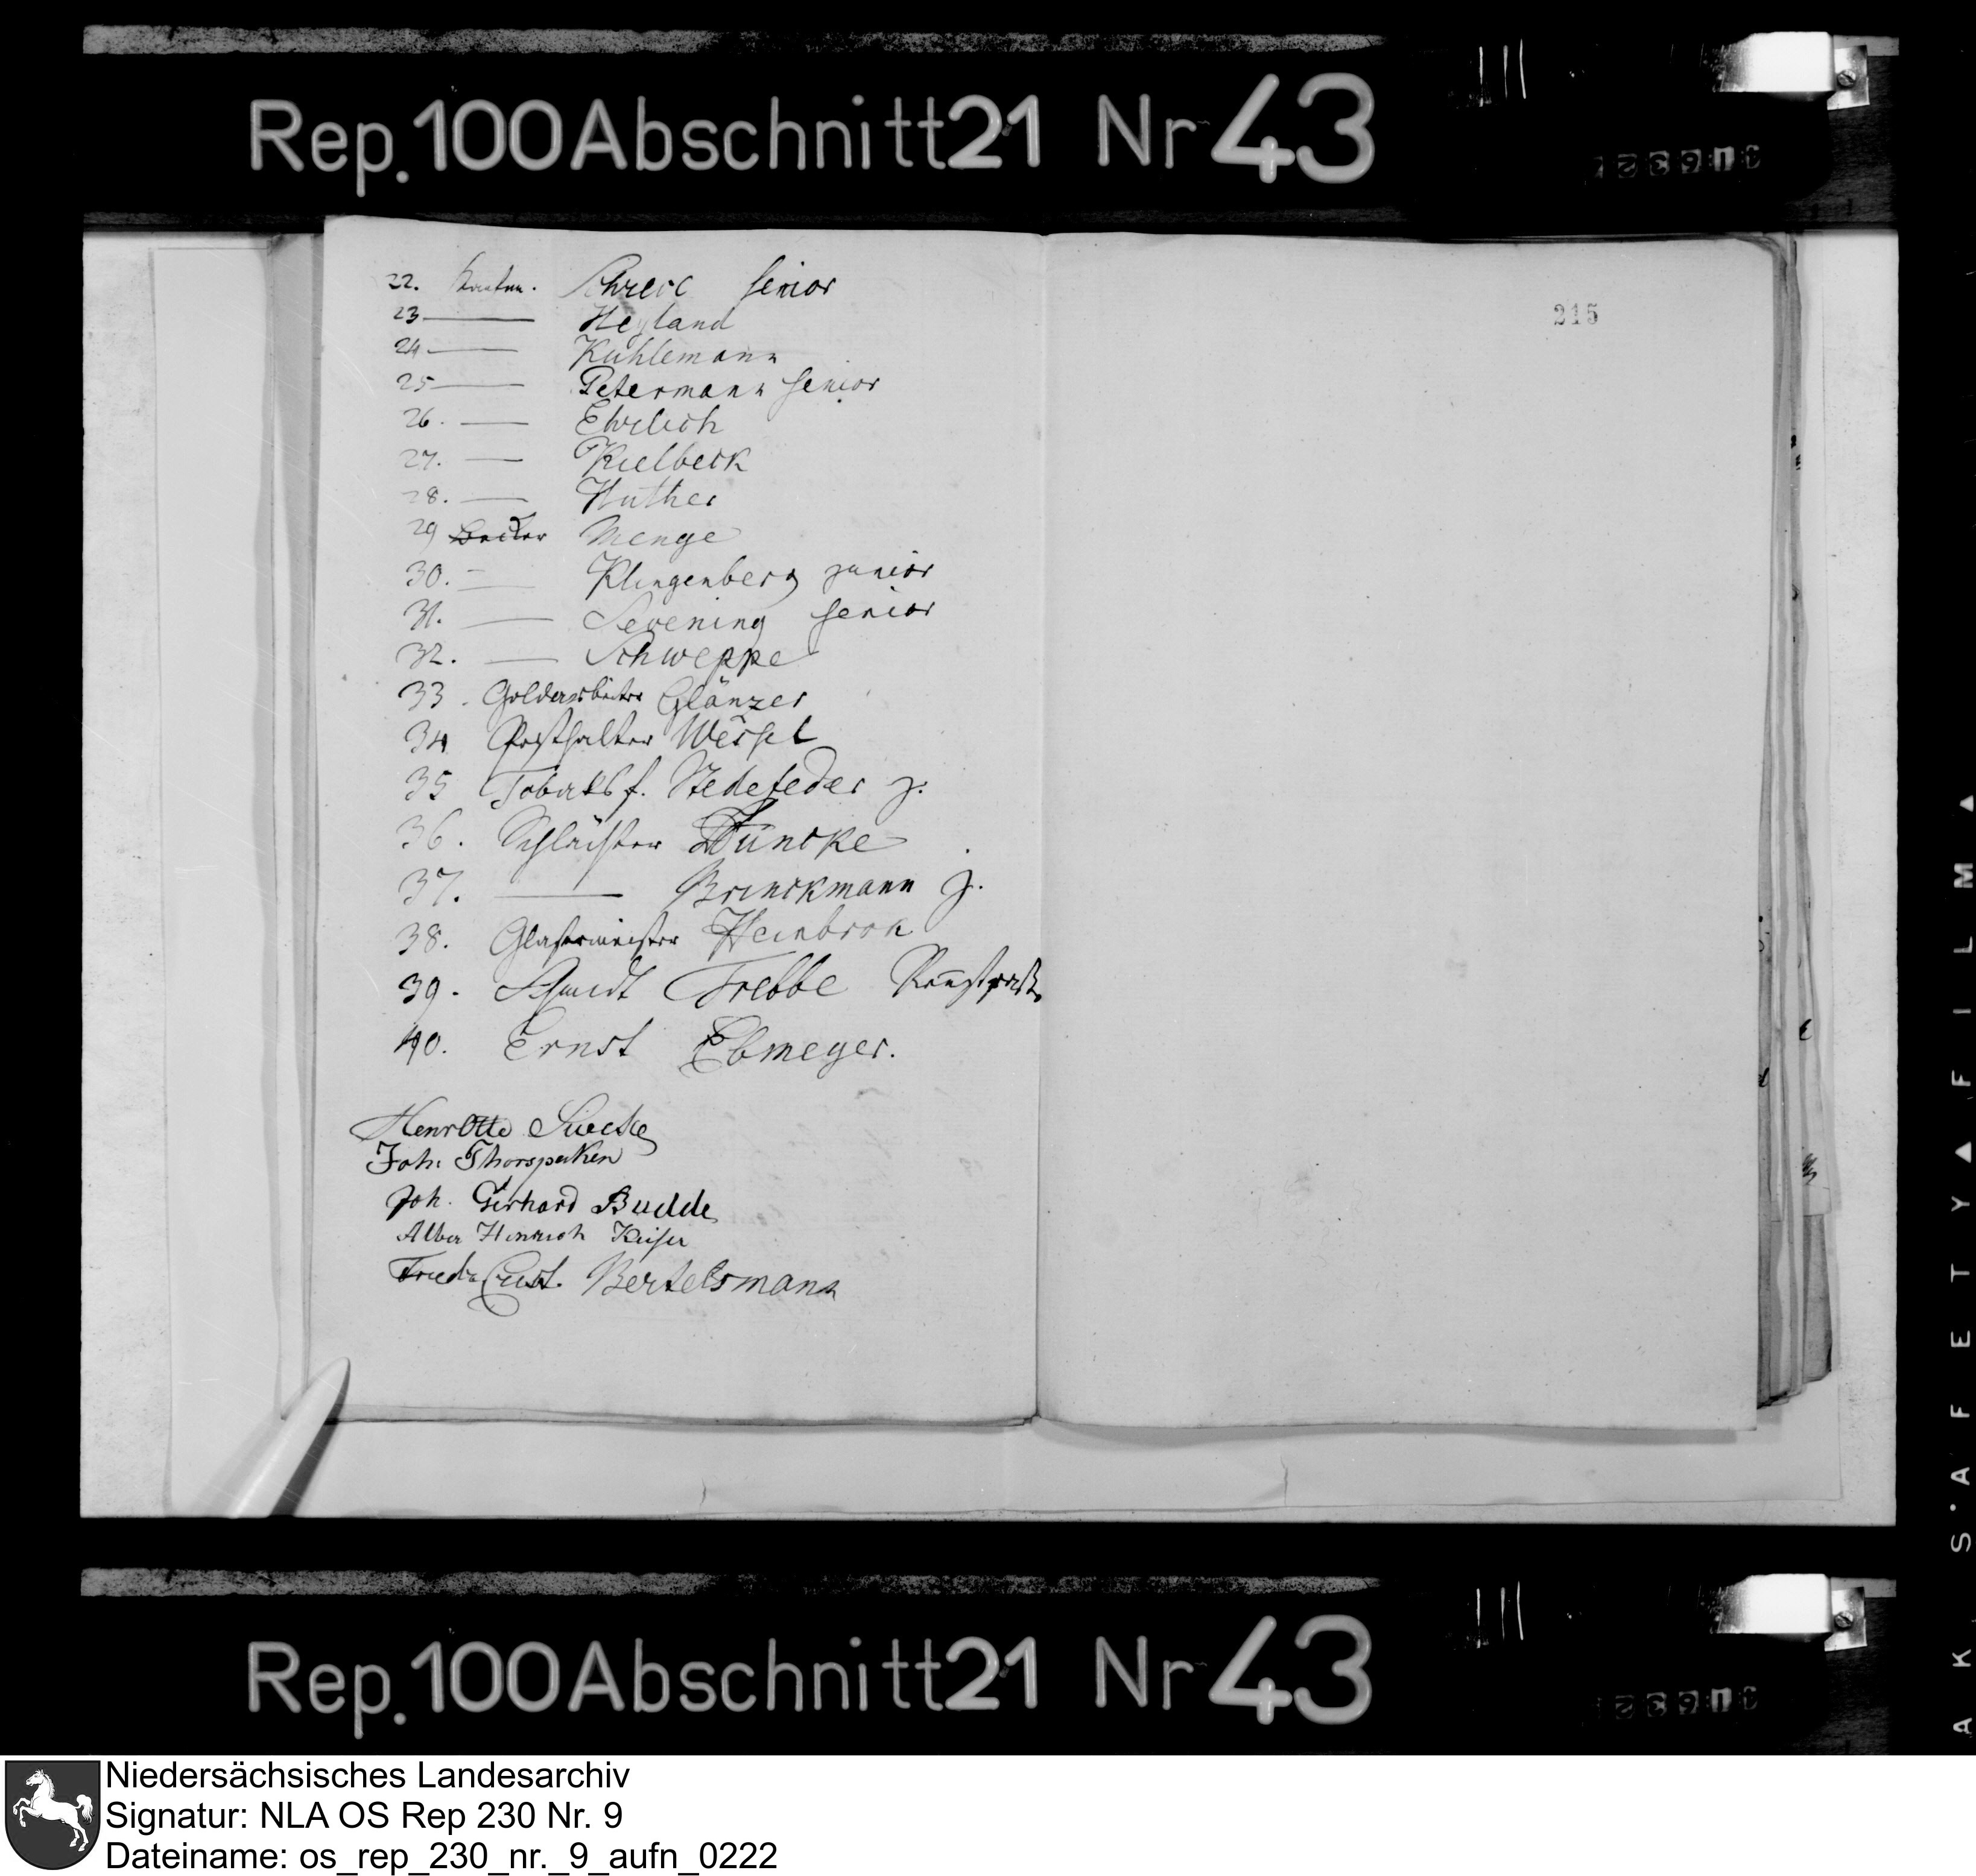 Rep. 100 Abschnitt 21 Nr 43
22. Schreve senior
23 — Heyland
24 — Kuhlemann
25 — Petermann senior
26. — Ehrlich
27. — Kielbeck
28. — Huther
29 Becker Menge
30. — Klingenberg junior
31. — Sevening senior
32. — Schweppe
33. Goldarbeiter Glänzer
34 Posthalter Wessel
35 Tobaksf. Stedefeder j.
36. Schlächter Düncke
37. — Brinckmann j.
38. Glasermeister Heinbrok
39. Schmidt Trebbe
40. Ernst Ebmeyer.
Henr Otto
Joh: Thorspecken
Joh. Gerhard Budde
Hinrich Keiser
Friedr Christ. Bertelsmann
215
Rep. 100 Abschnitt 21 Nr 43
AK S·AFETY▲FILM▲
Niedersächsisches Landesarchiv
Signatur: NLA OS Rep 230 Nr. 9
Dateiname: os_rep_230_nr._9_aufn_0222